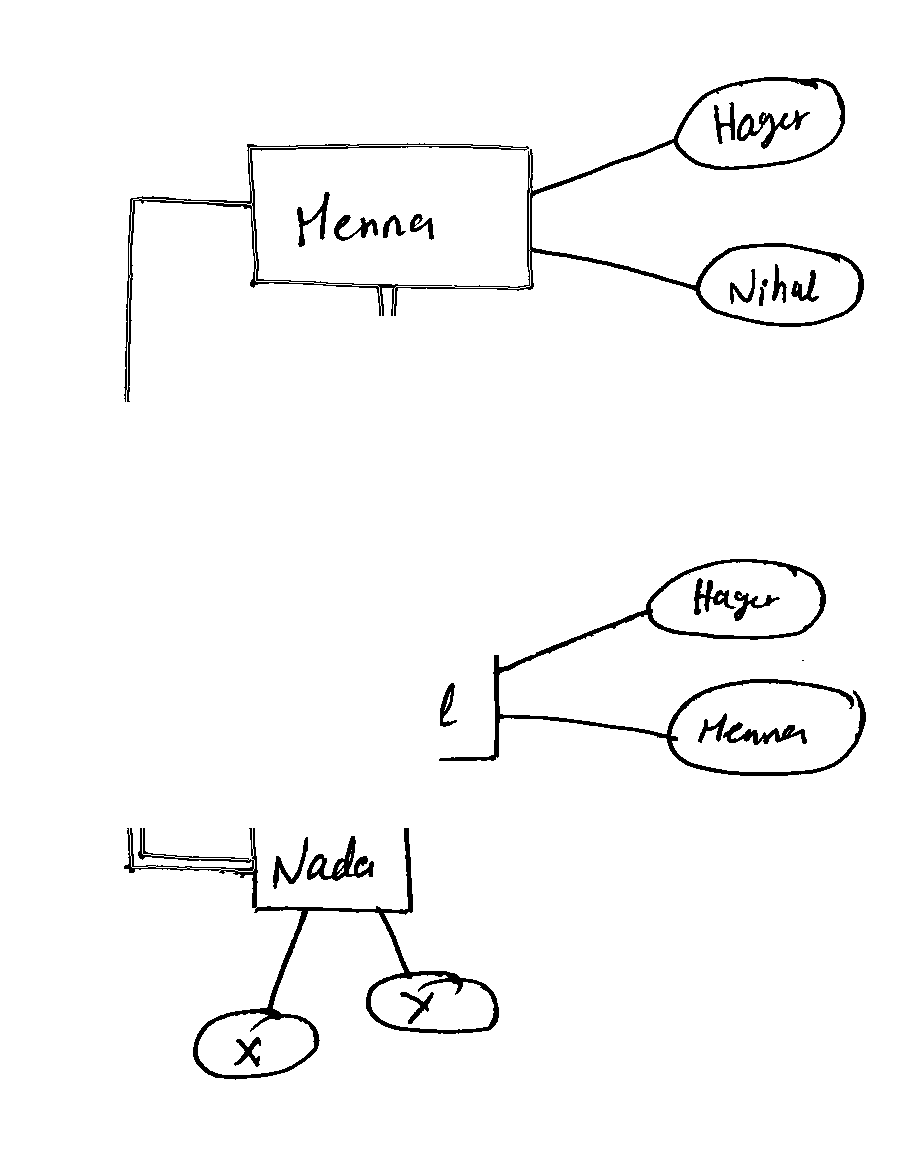 Hager
Menna
Nihal
Hager
l
Menna
Nada
Y
X